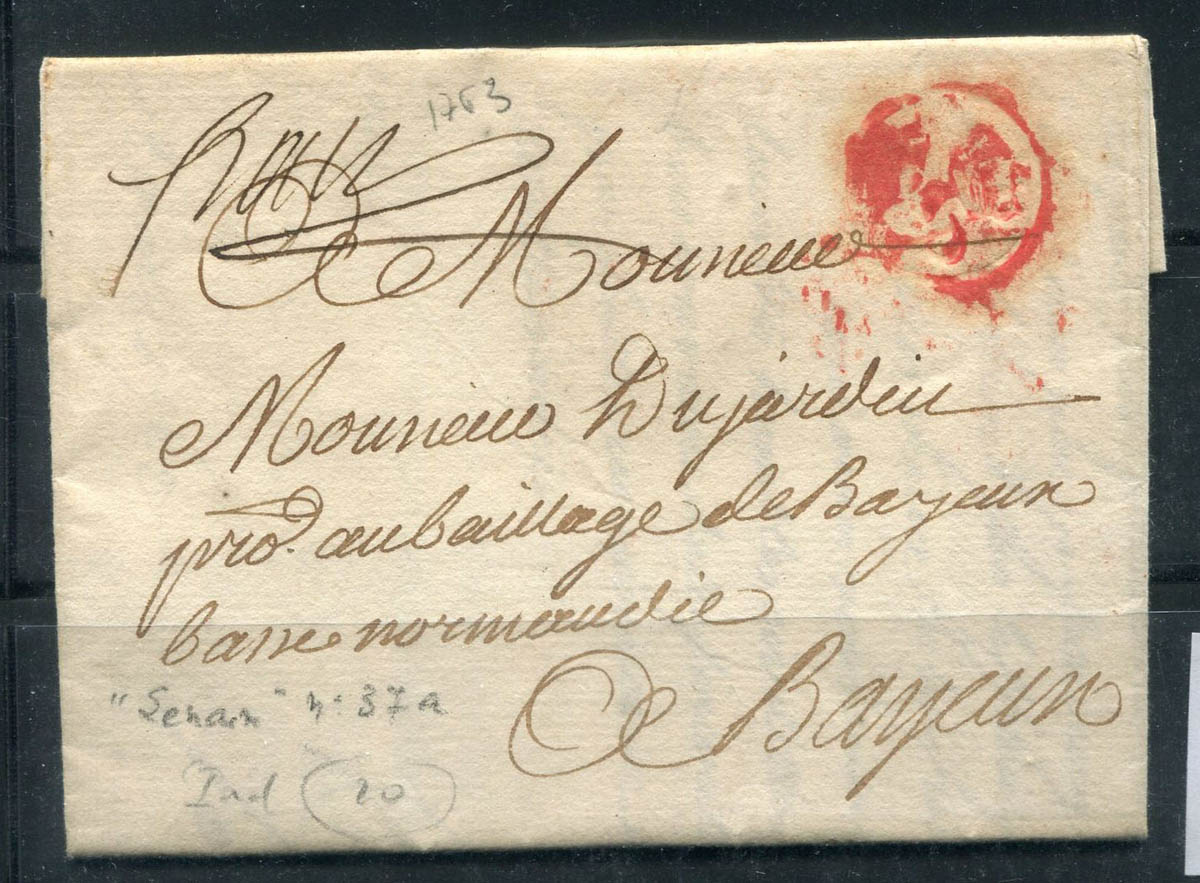 1763
A Monsieur
Monsieur Dujardin
pro.d au baillage de Bayeux
basse normandie
A Bayeux
"Senan" n° 37a
Ind 20